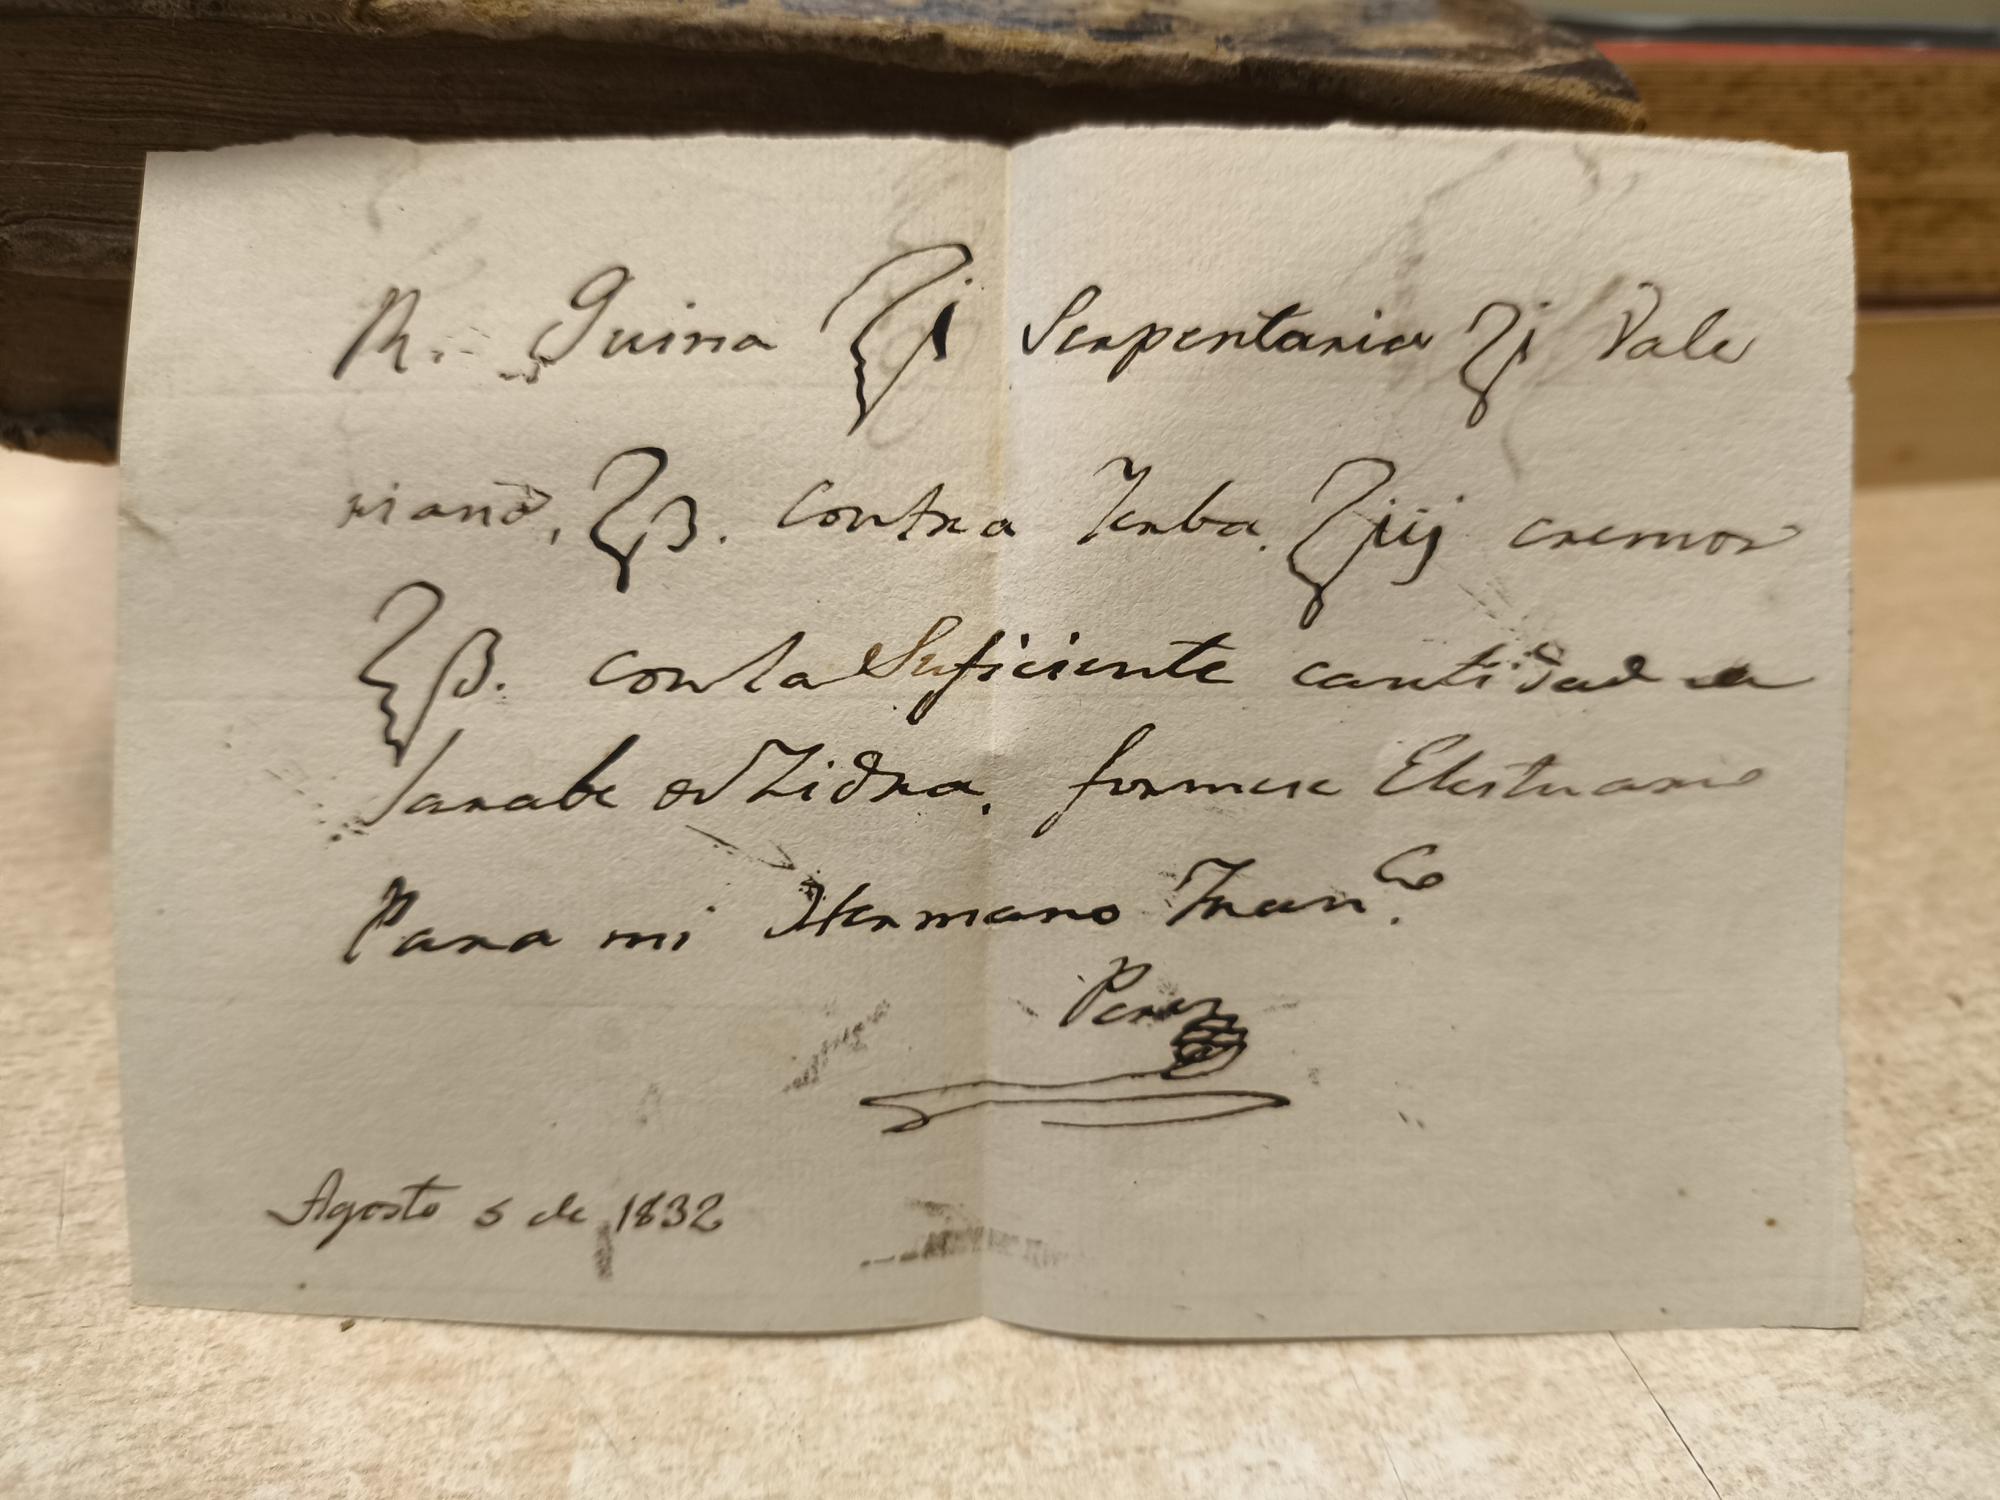 R. Quina ℥j Serpentaria ʒj Vale
riana, ʒß. contra Yerba. ʒiij cremor
℥ß. con la Suficiente cantidad de
Jarabe de Zidra. formese Elestuario
Para mi Hermano Fran.co
Perez
Agosto 5 de 1832